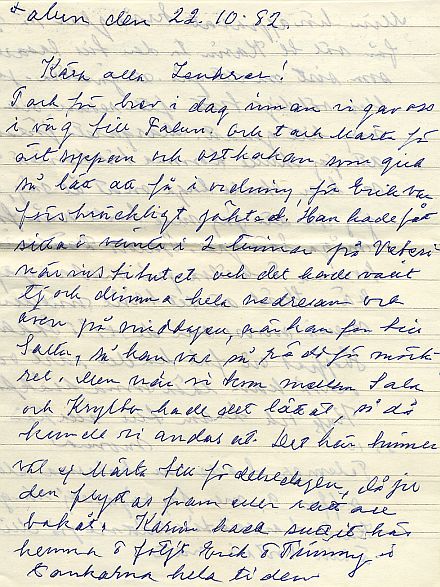 Falun den 22.10.82.
Kära alla Zenkrer!
Tack för brev i dag, innan vi gav oss
i väg till Falun. Och tack Märta för
ärtsoppan och ostkakan som gick
så lätt att få i ordning, för Erik var
förskräckligt jäktad. Han hade fått
sitta i vänta i 2 timmar på Veteri-
närinstitutet och det hade varit
tjock dimma hela nedresan och
även på middagen, när han for till
Salta, så han var så rädd för mörk
ret. Men när vi kom mellan Sala
och Krylbo hade det lättat, så då
kunde vi andas ut. Det här hinner
väl ej Märta till födelsedagen, då ju
den flyttas fram eller rättare
bakåt. Karin hade suttit här
hemma o följt Erik o Timmy i
tankarna hela tiden